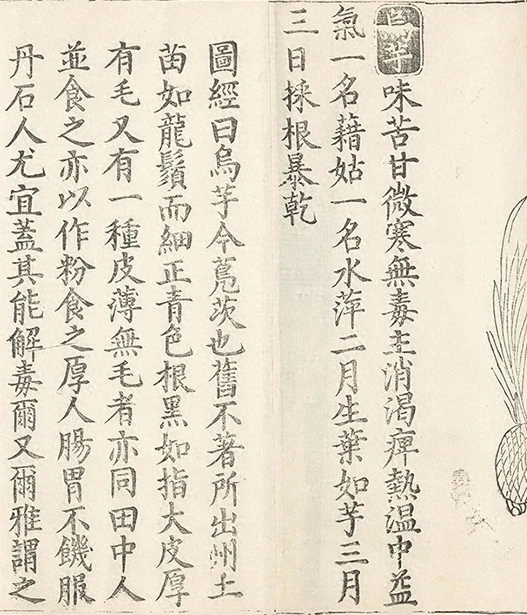 烏芋味苦甘微寒無毒主消渴痺熱温中益
氣一名藉姑一名水萍二月生葉如芋三月
三日採根暴乾
圖經曰烏芋今鳧茨也舊不著所出州土
苗如龍鬚而細正青色根黑如指大皮厚
有毛又有一種皮薄無毛者亦同田中人
並食之亦以作粉食之厚人腸胃不饑服
丹石人尤宜蓋其能解毒爾又爾雅謂之